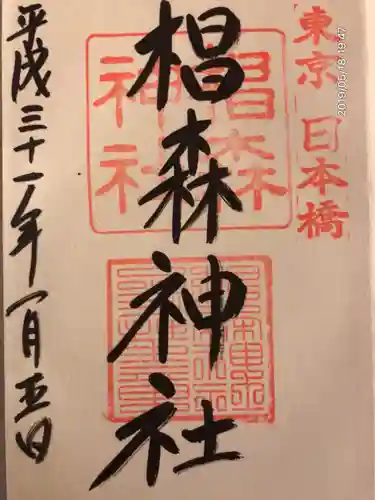 東京 日本橋
椙森神社
椙森神社
平成三十一年一月五日
2019/06/18 19:47